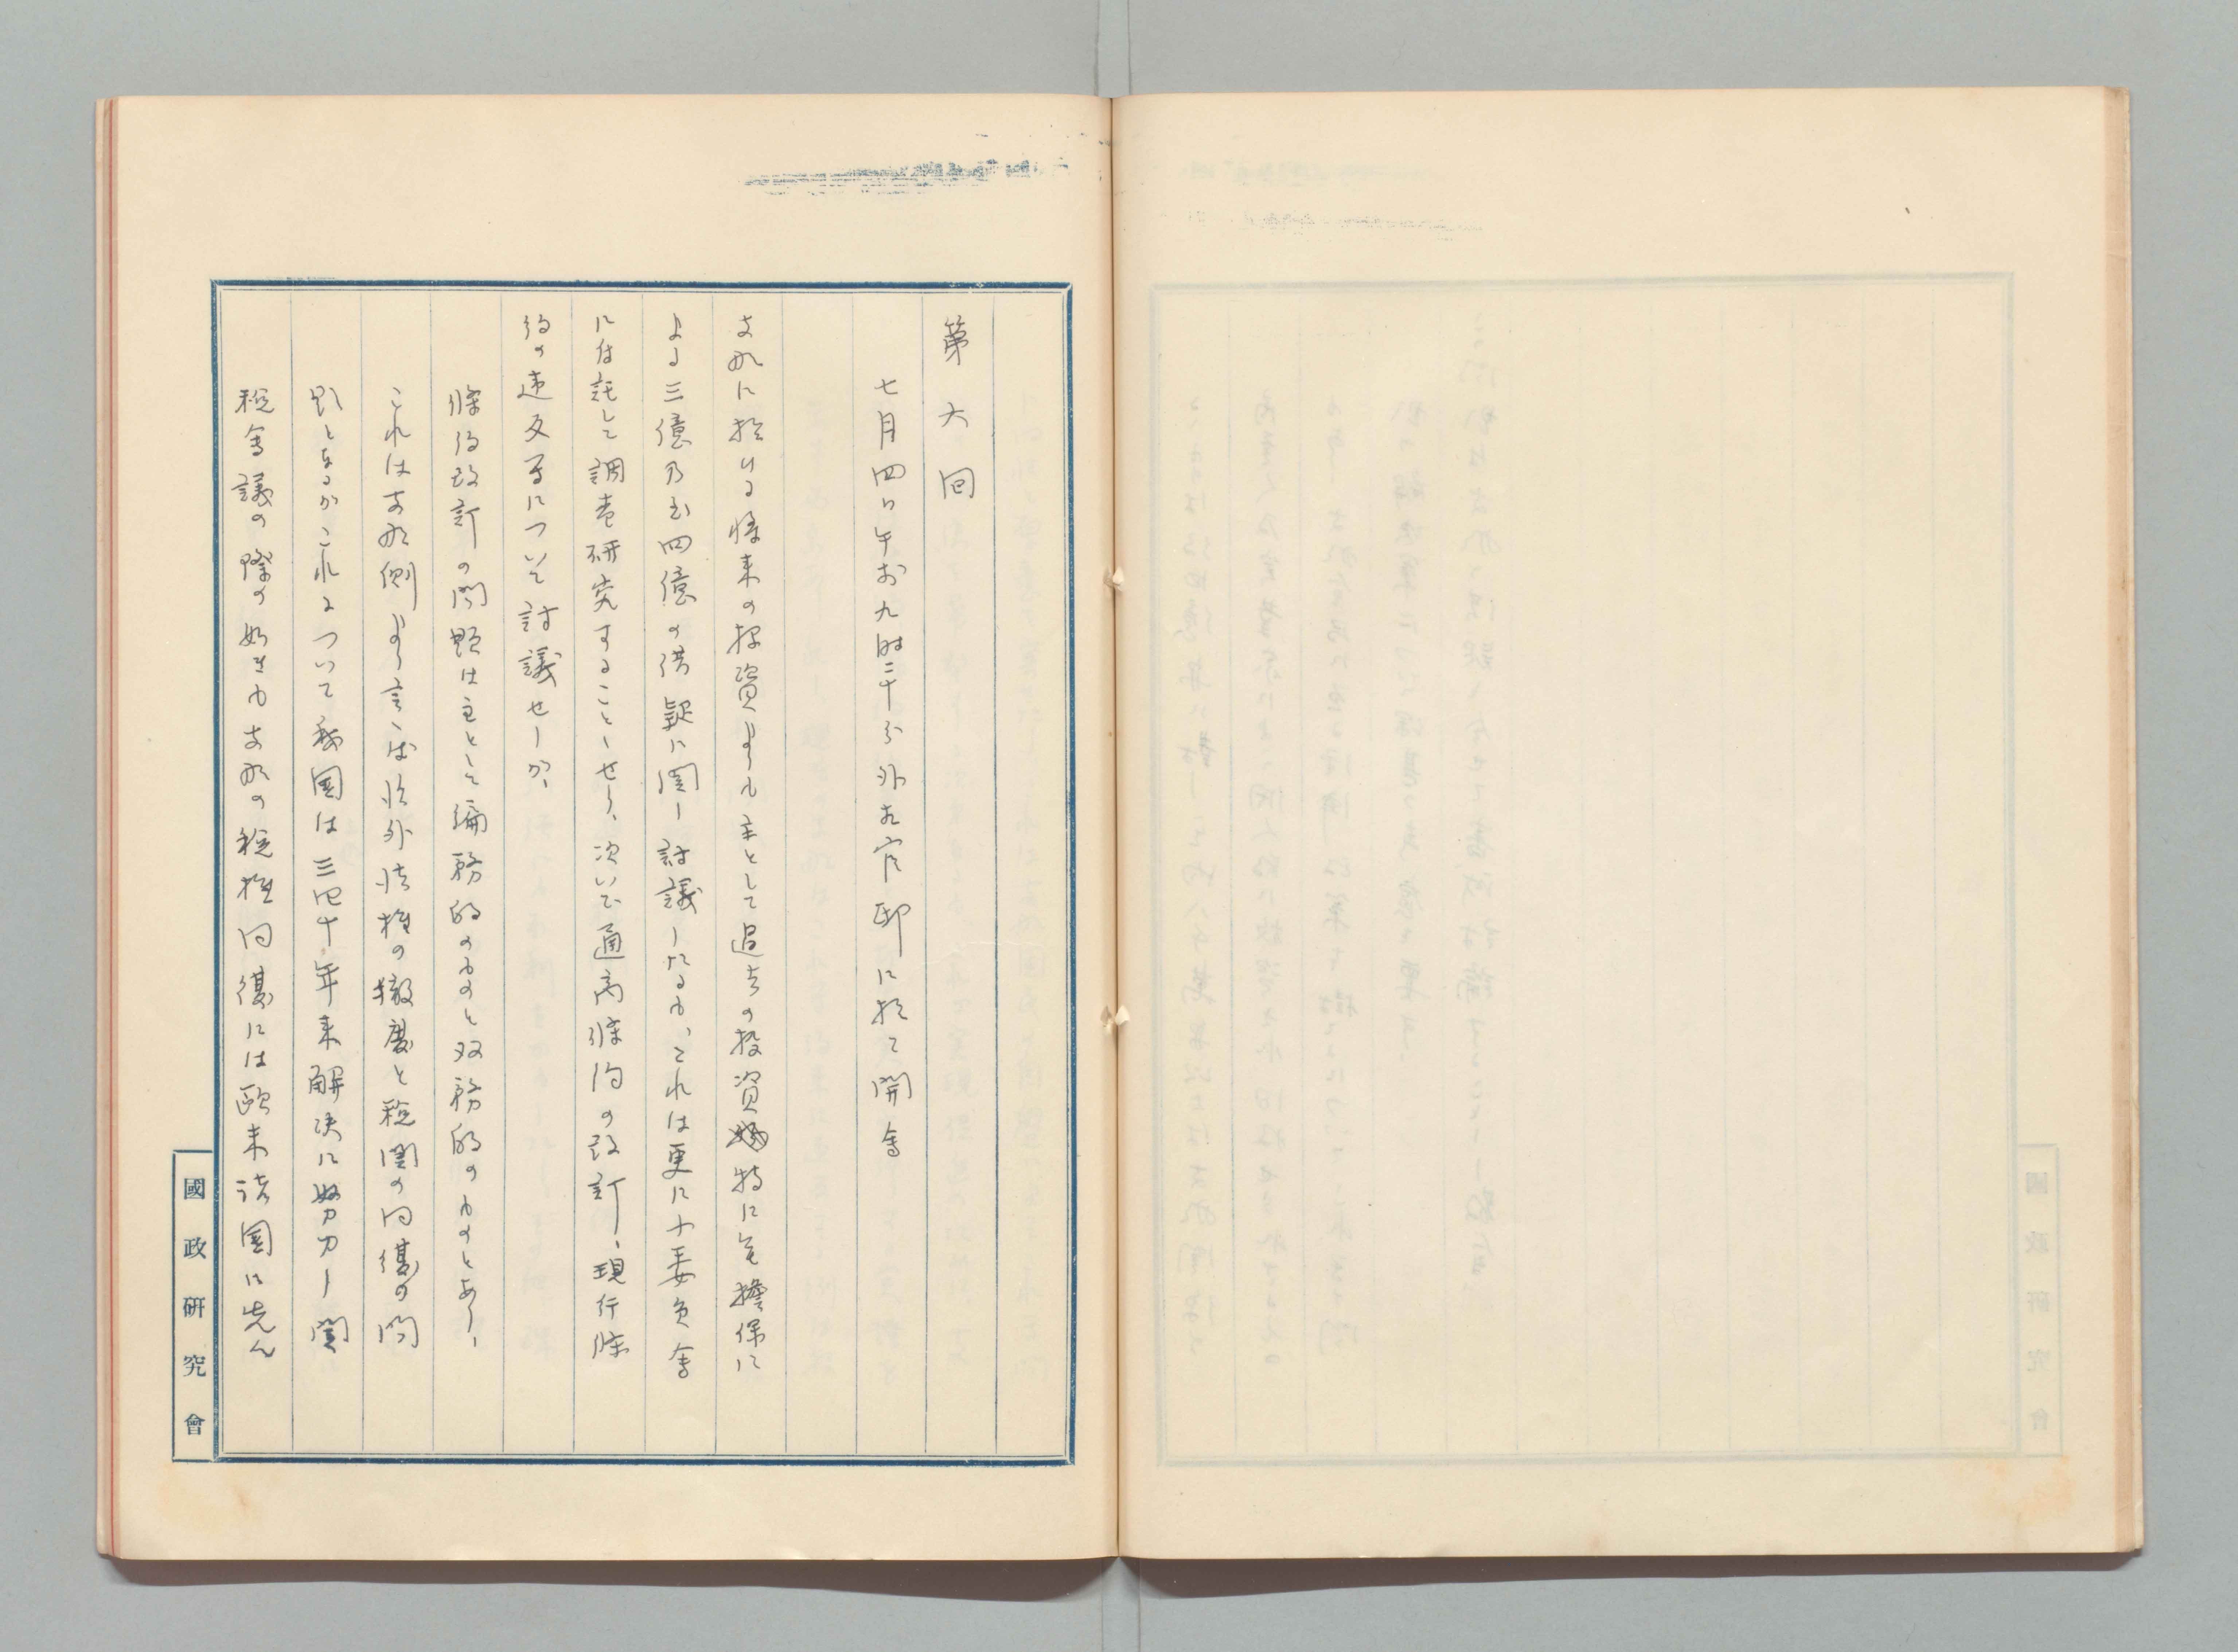 第六回
七月四日午前九時三十分外相官邸に於て開会
支那に於ける将来の投資よりも主として過去の投資特に無擔保に
よる三億乃至四億の借款に関し討議したるも、これは更に小委員会
に付託して調査研究することゝせり、次いで通商條約の改訂、現行條
約の違反等について討議せしが、
條約改訂の問題は主として編務的のものと双務的のものとあり、
これは支那側より言へば治外法権の撤廃と税関の回復の問
題となるがこれについて我国は三四十年来解決に努力し関
税会議の際の如きも支那の税権回復には欧米諸国に先ん
國政研究會